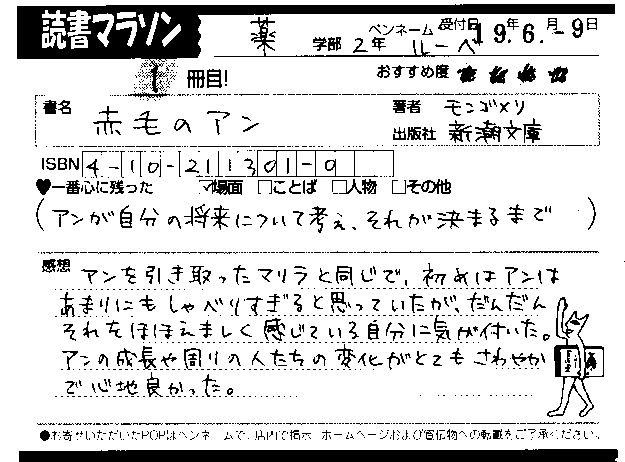 読書マラソン
薬 学部 2年 ペンネーム ルーペ 受付日 19年6.月-9日
1 冊目!
おすすめ度
書名 赤毛のアン
著者 モンゴメリ
出版社 新潮文庫
ISBN 4-10-211301-0
♥一番心に残った ☑場面 □ことば □人物 □その他
(アンが自分の将来について考え、それが決まるまで)
感想 アンを引き取ったマリラと同じで、初めはアンは
あまりにもしゃべりすぎると思っていたが、だんだん
それをほほえましく感じている自分に気が付いた。
アンの成長や周りの人たちの変化がとてもさわやか
で心地良かった。
●お寄せいただいたPOPはペンネームで、店内で掲示・ホームページおよび宣伝物への転載をご了承ください。